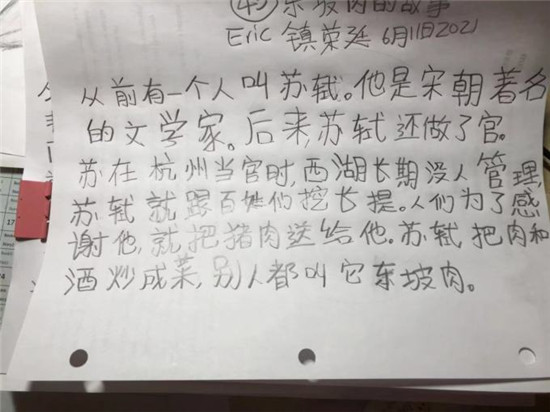 ④东坡肉的故事
Eric 镇荣延 6月11日2021
从前有一个人叫苏轼。他是宋朝著名
的文学家。后来,苏轼还做了官。
苏在杭州当官时,西湖长期没人管理,
苏轼就跟百姓们挖长提。人们为了感
谢他,就把猪肉送给他。苏轼把肉和
酒炒成菜,别人都叫它东坡肉。